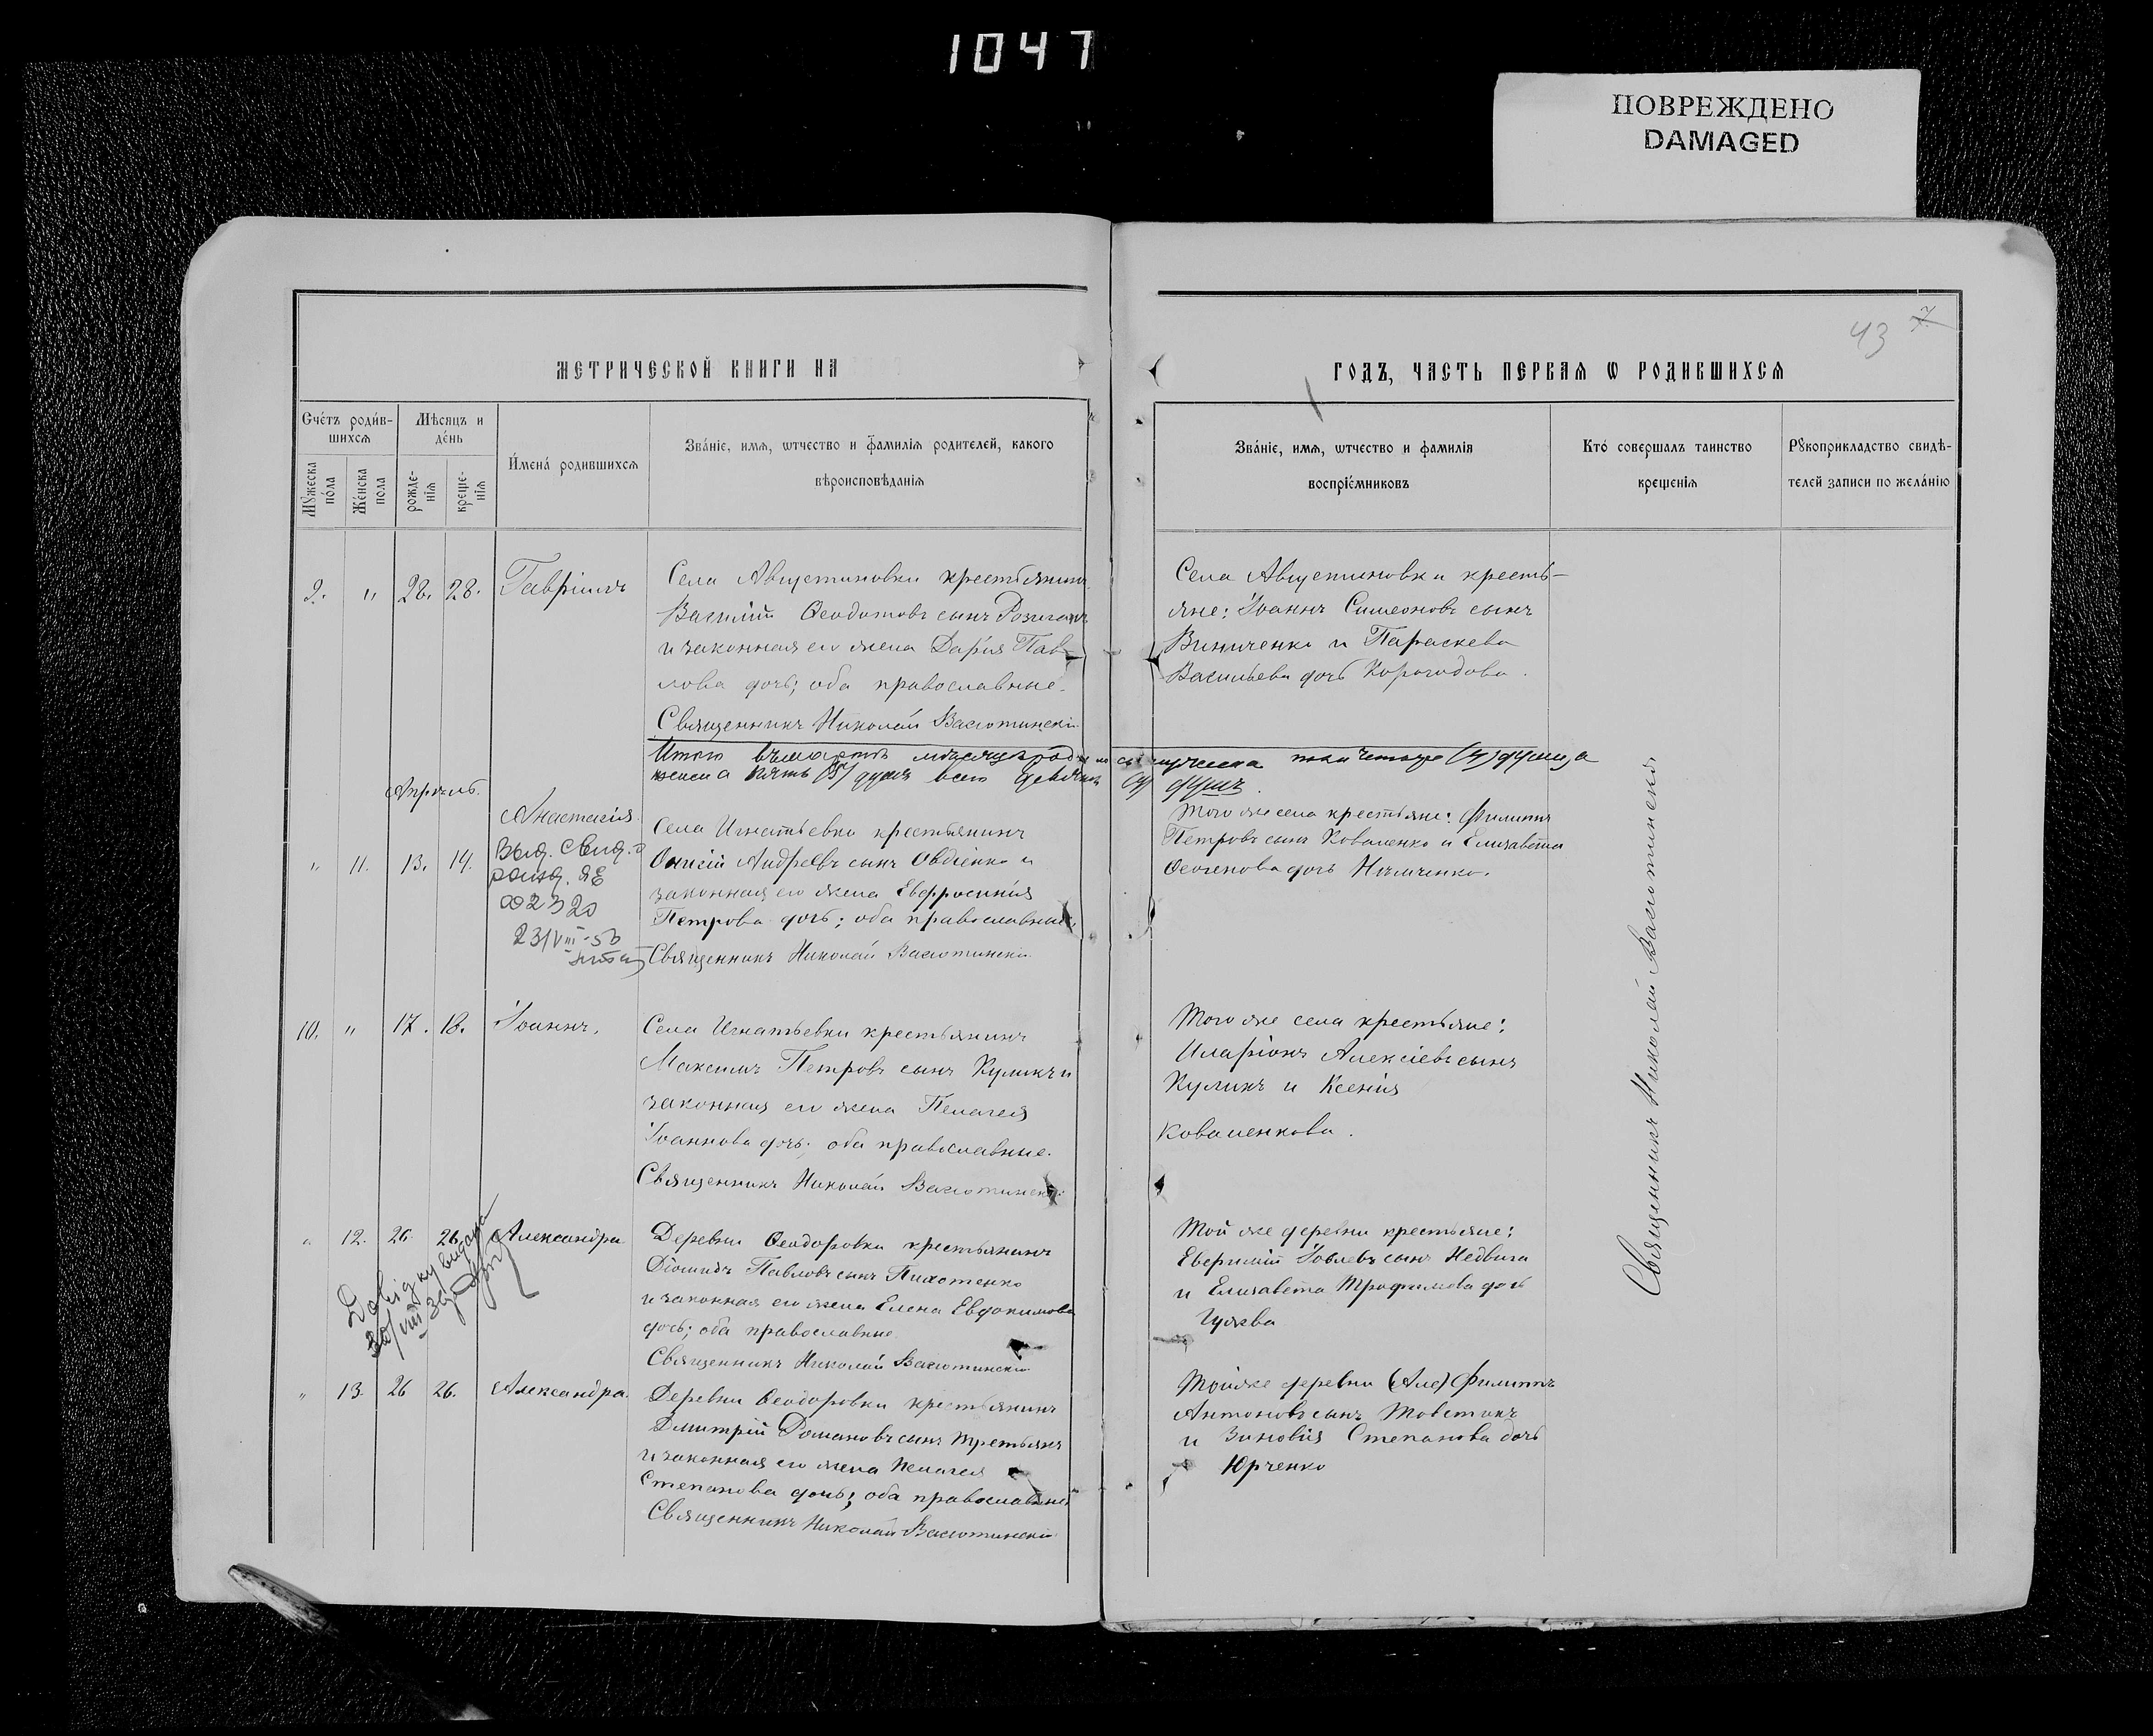 1047
ПОВРЕЖДЕНО
DAMAGED
43 7
МЕТРИЧЕСКОЙ КНИГИ НА
ГОДЪ, ЧАСТЬ ПЕРВАѦ Ѡ РОДИВШИХСѦ
Счётъ роди́в-
шихсѧ
Мѣ́сѧцъ и
де́нь
Мꙋ́жеска
по́ла
Же́нска
пола
рожде-
нїѧ
креще-
нїѧ
И́мена́ родившихсѧ
Зва́нїе, имѧ, ѿтчество и фамилїѧ родителей, какого
вѣроисповѣданїѧ
Зва́нїе, имѧ, ѿтчество и фамилїѧ
воспрїе́мниковъ
Кто́ совершалъ таинство
крещенїѧ
Рꙋкоприкладство свидѣ-
телей записи по жела́нїю
9. " 28. 28. Гавріилъ
Села Августиновки крестьянинъ
Василій Ѳеодотовъ сынъ
и законная его жена Дарія Пав-
лова дочь; оба православные.
Священникъ Николай Васютинскій
Села Августиновки кресть-
яне: Іоаннъ Симеоновъ сынъ
Виниченко и Параскева
Васильева дочь Корогодова.
Итого въ мартѣ мѣсяцѣ родилось мужеска пола четыре (4) душъ, а
женска пять (5) душъ всего девять (9) душъ.
Апрѣль.
" 11. 13. 14. Анастасія
Выд. свид. о
рожд. ЯЕ
002320
23/VIII-55
Села Игнатьевки крестьянинъ
Андреевъ сынъ Овдіенко и
законная его жена Евфросинія
Петрова дочь; оба православные.
Священникъ Николай Васютинскій
Того же села крестьяне: Филиппъ
Петровъ сынъ Коваленко и Елизавета
дочь Нѣмченко.
10. " 17. 18. Іоаннъ.
Села Игнатьевки крестьянинъ
Максимъ Петровъ сынъ Куликъ и
законная его жена Пелагея
Іоаннова дочь; оба православные.
Священникъ Николай Васютинскій
Того же села крестьяне:
Иларіонъ Алексіевъ сынъ
Куликъ и Ксенія
Коваленкова.
" 12. 26. 26. Александра
Довідку видано
30/VIII
Деревни Ѳеодоровки крестьянинъ
Діомидъ Павловъ сынъ Пихотенко
и законная его жена Елена Евдокимова
дочь; оба православные
Священникъ Николай Васютинскій
Той же деревни крестьяне:
Евфимій Іовлевъ сынъ Недвига
и Елизавета Трофимова дочь
" 13. 26 26. Александра.
Деревни Ѳеодоровки крестьянинъ
Дмитрій Романовъ сынъ Третьякъ
и законная его жена Пелагея
Степанова дочь; оба православные
Священникъ Николай Васютинскій
Той же деревни Филиппъ
Антоновъ сынъ Товстикъ
и Зиновія Степанова дочь
Юрченко
Священникъ Николай Васютинскій